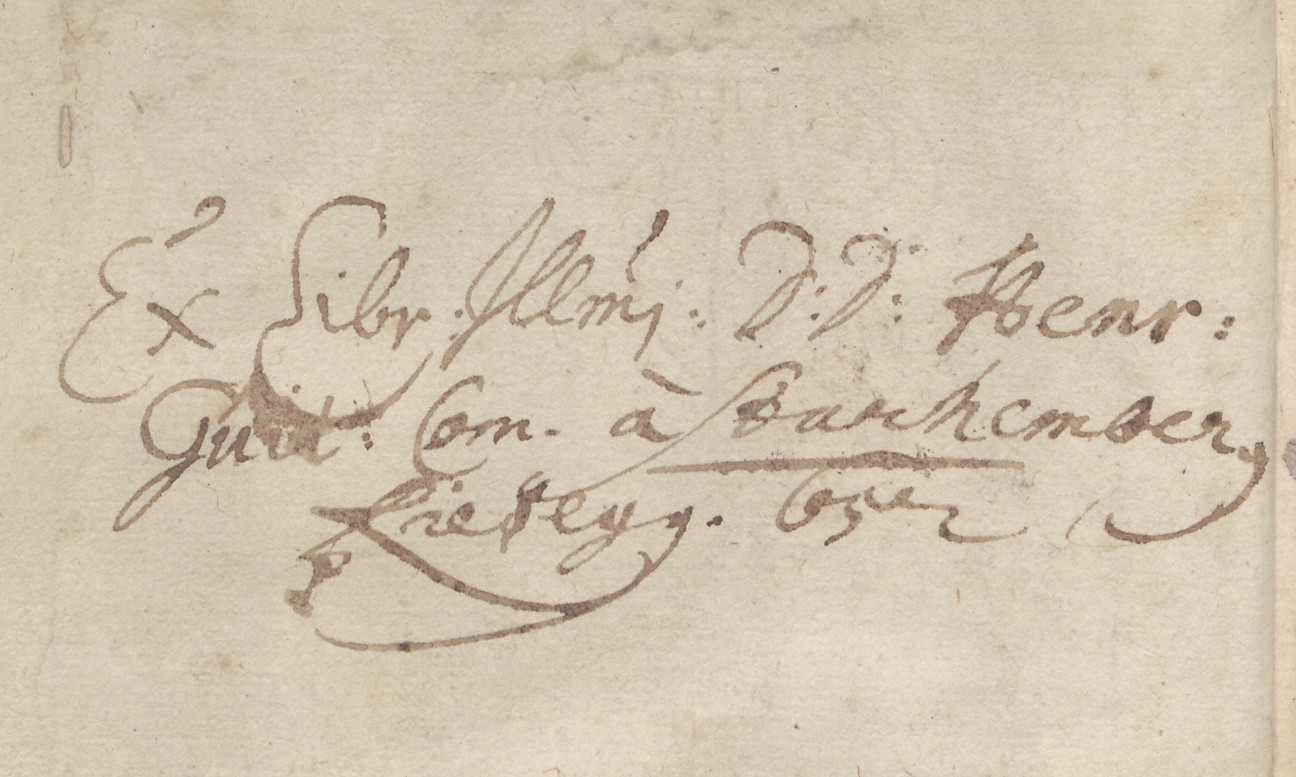 Ex Libr. Illmj: D: D: Henr:
Guil: Com. à Starhemberg
Riedegg.